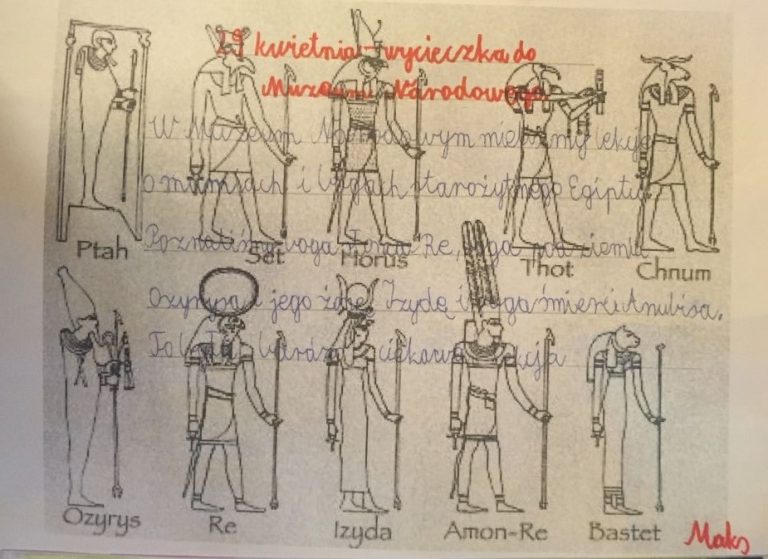 29 kwietnia - wycieczka do
Muzeum Narodowego
W Muzeum Narodowym mieliśmy lekcję
o mumiach i bogach starożytnego Egiptu.
Poznaliśmy boga słońca Re, boga pod ziemią
Ozyrysa i jego żonę Izydę i boga śmierci Anubisa.
To była bardzo ciekawa lekcja
Ptah Set Horus Thot Chnum
Ozyrys Re Izyda Amon-Re Bastet
Maks